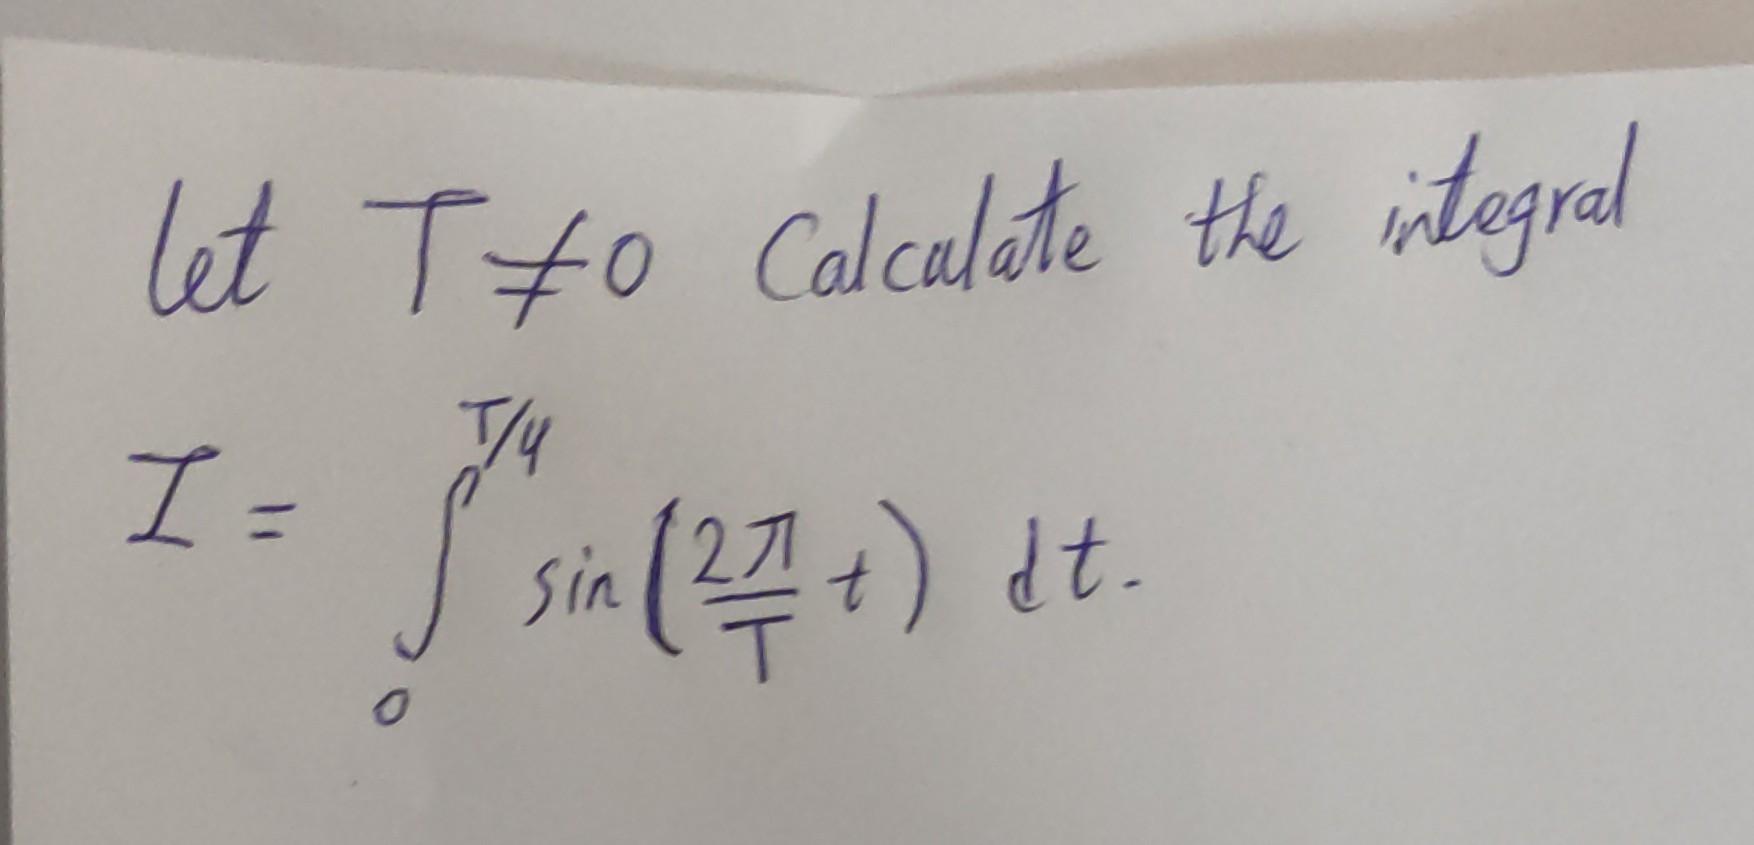 let T ≠ 0 Calculate the integral
I = ∫₀^{T/4} sin(2π/T t) dt.